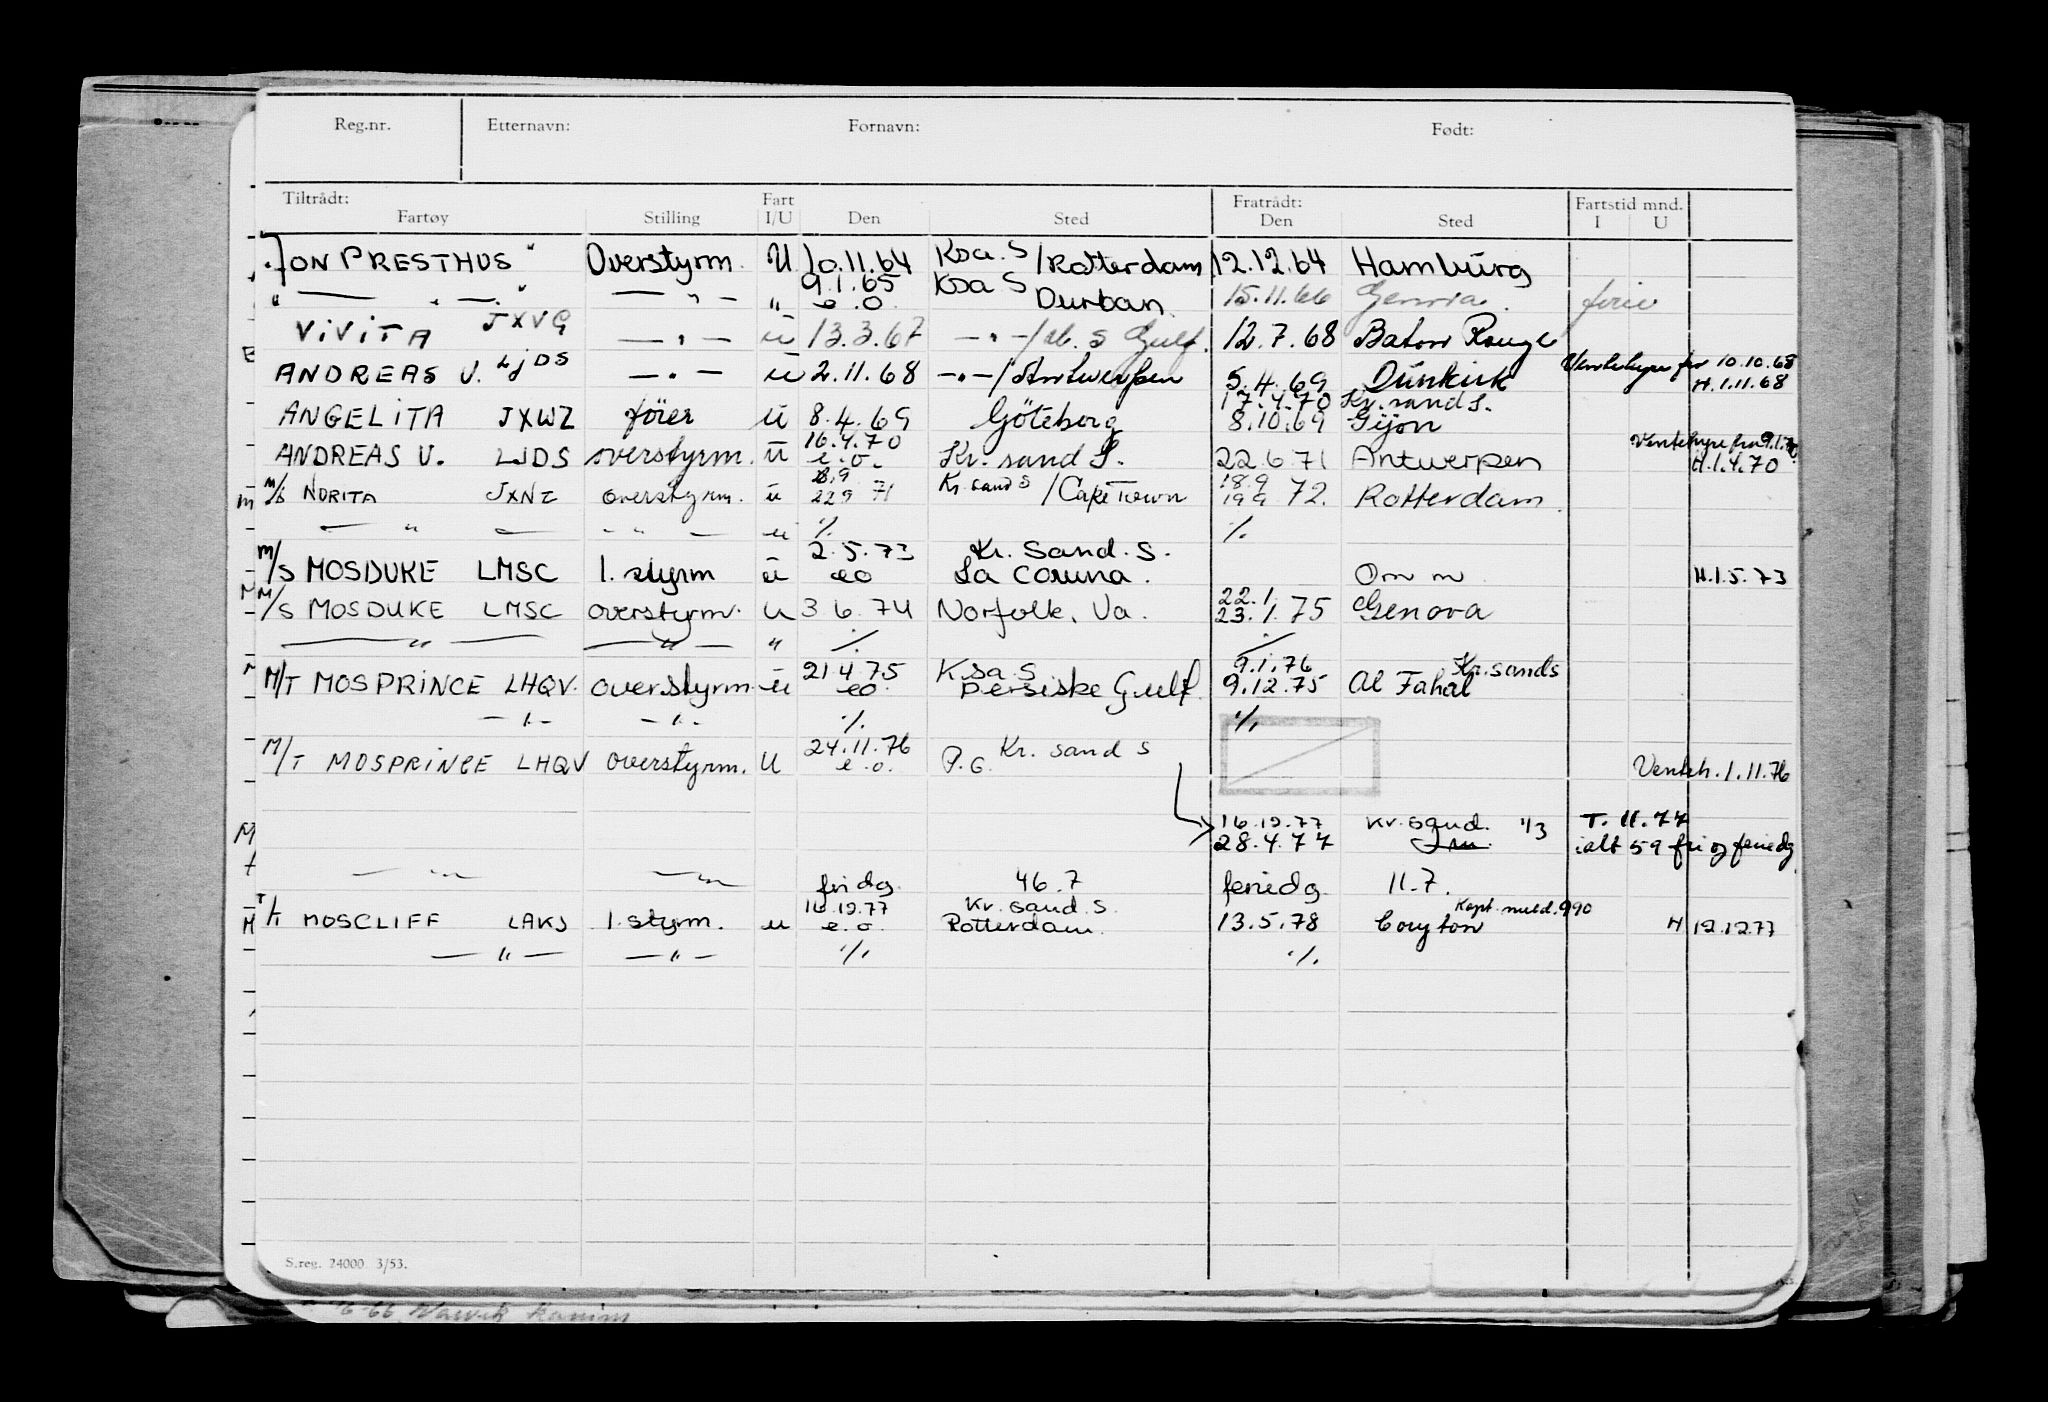 Reg.nr. Etternavn: Fornavn: Født:
Tiltrådt: Fart Fratrådt: Fartstid mnd.
Fartøy Stilling I/U Den Sted Den Sted I U
"JON PRESTHUS" Overstyrm. U 10.11.64 Ksa. S /Rotterdam 12.12.64 Hamburg
" — " — " — " — " 9.1.65 e.o. Ksa S Durban 15.11.66 Genova ferie
ViViTA JXVG — " — u 13.3.67 — " —/ S Gulf. 12.7.68 Baton Rouge
ANDREAS U. LJDS — " — u 2.11.68 — " —/Antwerpen 5.4.69 Dunkirk Ventehyre fra 10.10.68
H.1.11.68
17.4.70 Kr.sand S.
ANGELITA JXWZ fører u 8.4.69 Göteborg 8.10.69 Gijon
ANDREAS U. LJDS overstyrm. u 16.4.70 e.o. Kr. sand S. 22.6.71 Antwerpen Ventehyre fra 9.1.70
H.1.4.70
M/S NORITA JXNZ overstyrm. u 22.9 71 Kr. sand S /Cape Town 18.9 19.9 72. Rotterdam.
— " — — " — u ./. ./.
M/S MOSDUKE LMSC 1. styrm u 2.5.73 eo Kr. Sand. S. La Coruna. Om m H.1.5.73
M/S MOSDUKE LMSC overstyrm. u 3 6.74 Norfolk, Va. 22.1. 23.1.75 Genova
— " — — " — " ./. ./.
M/T MOSPRINCE LHQV. overstyrm. u 21 4.75 eo. Ksa S Persiske Gulf 9.1.76 Kr.sands
9.12.75 Al Fahal
— " — — " — ./. ./.
M/T MOSPRINCE LHQV overstyrm. U 24.11.76 e.o. P.G. Kr. sand S Venteh. 1.11.76
16.12.77 Kr.sand. 1/3 T. 11.77
28.4.77 ialt 59 fri og feriedg
— " — — " — fridg. 46.7 feriedg 11.7.
T/T MOSCLIFF LAKJ 1. styrm. u 16.12.77 e.o. Kr. sand. S. Rotterdam. 13.5.78 Coryton H 12.12.77
— " — — " — ./. ./.
S.reg. 24000 3/53.